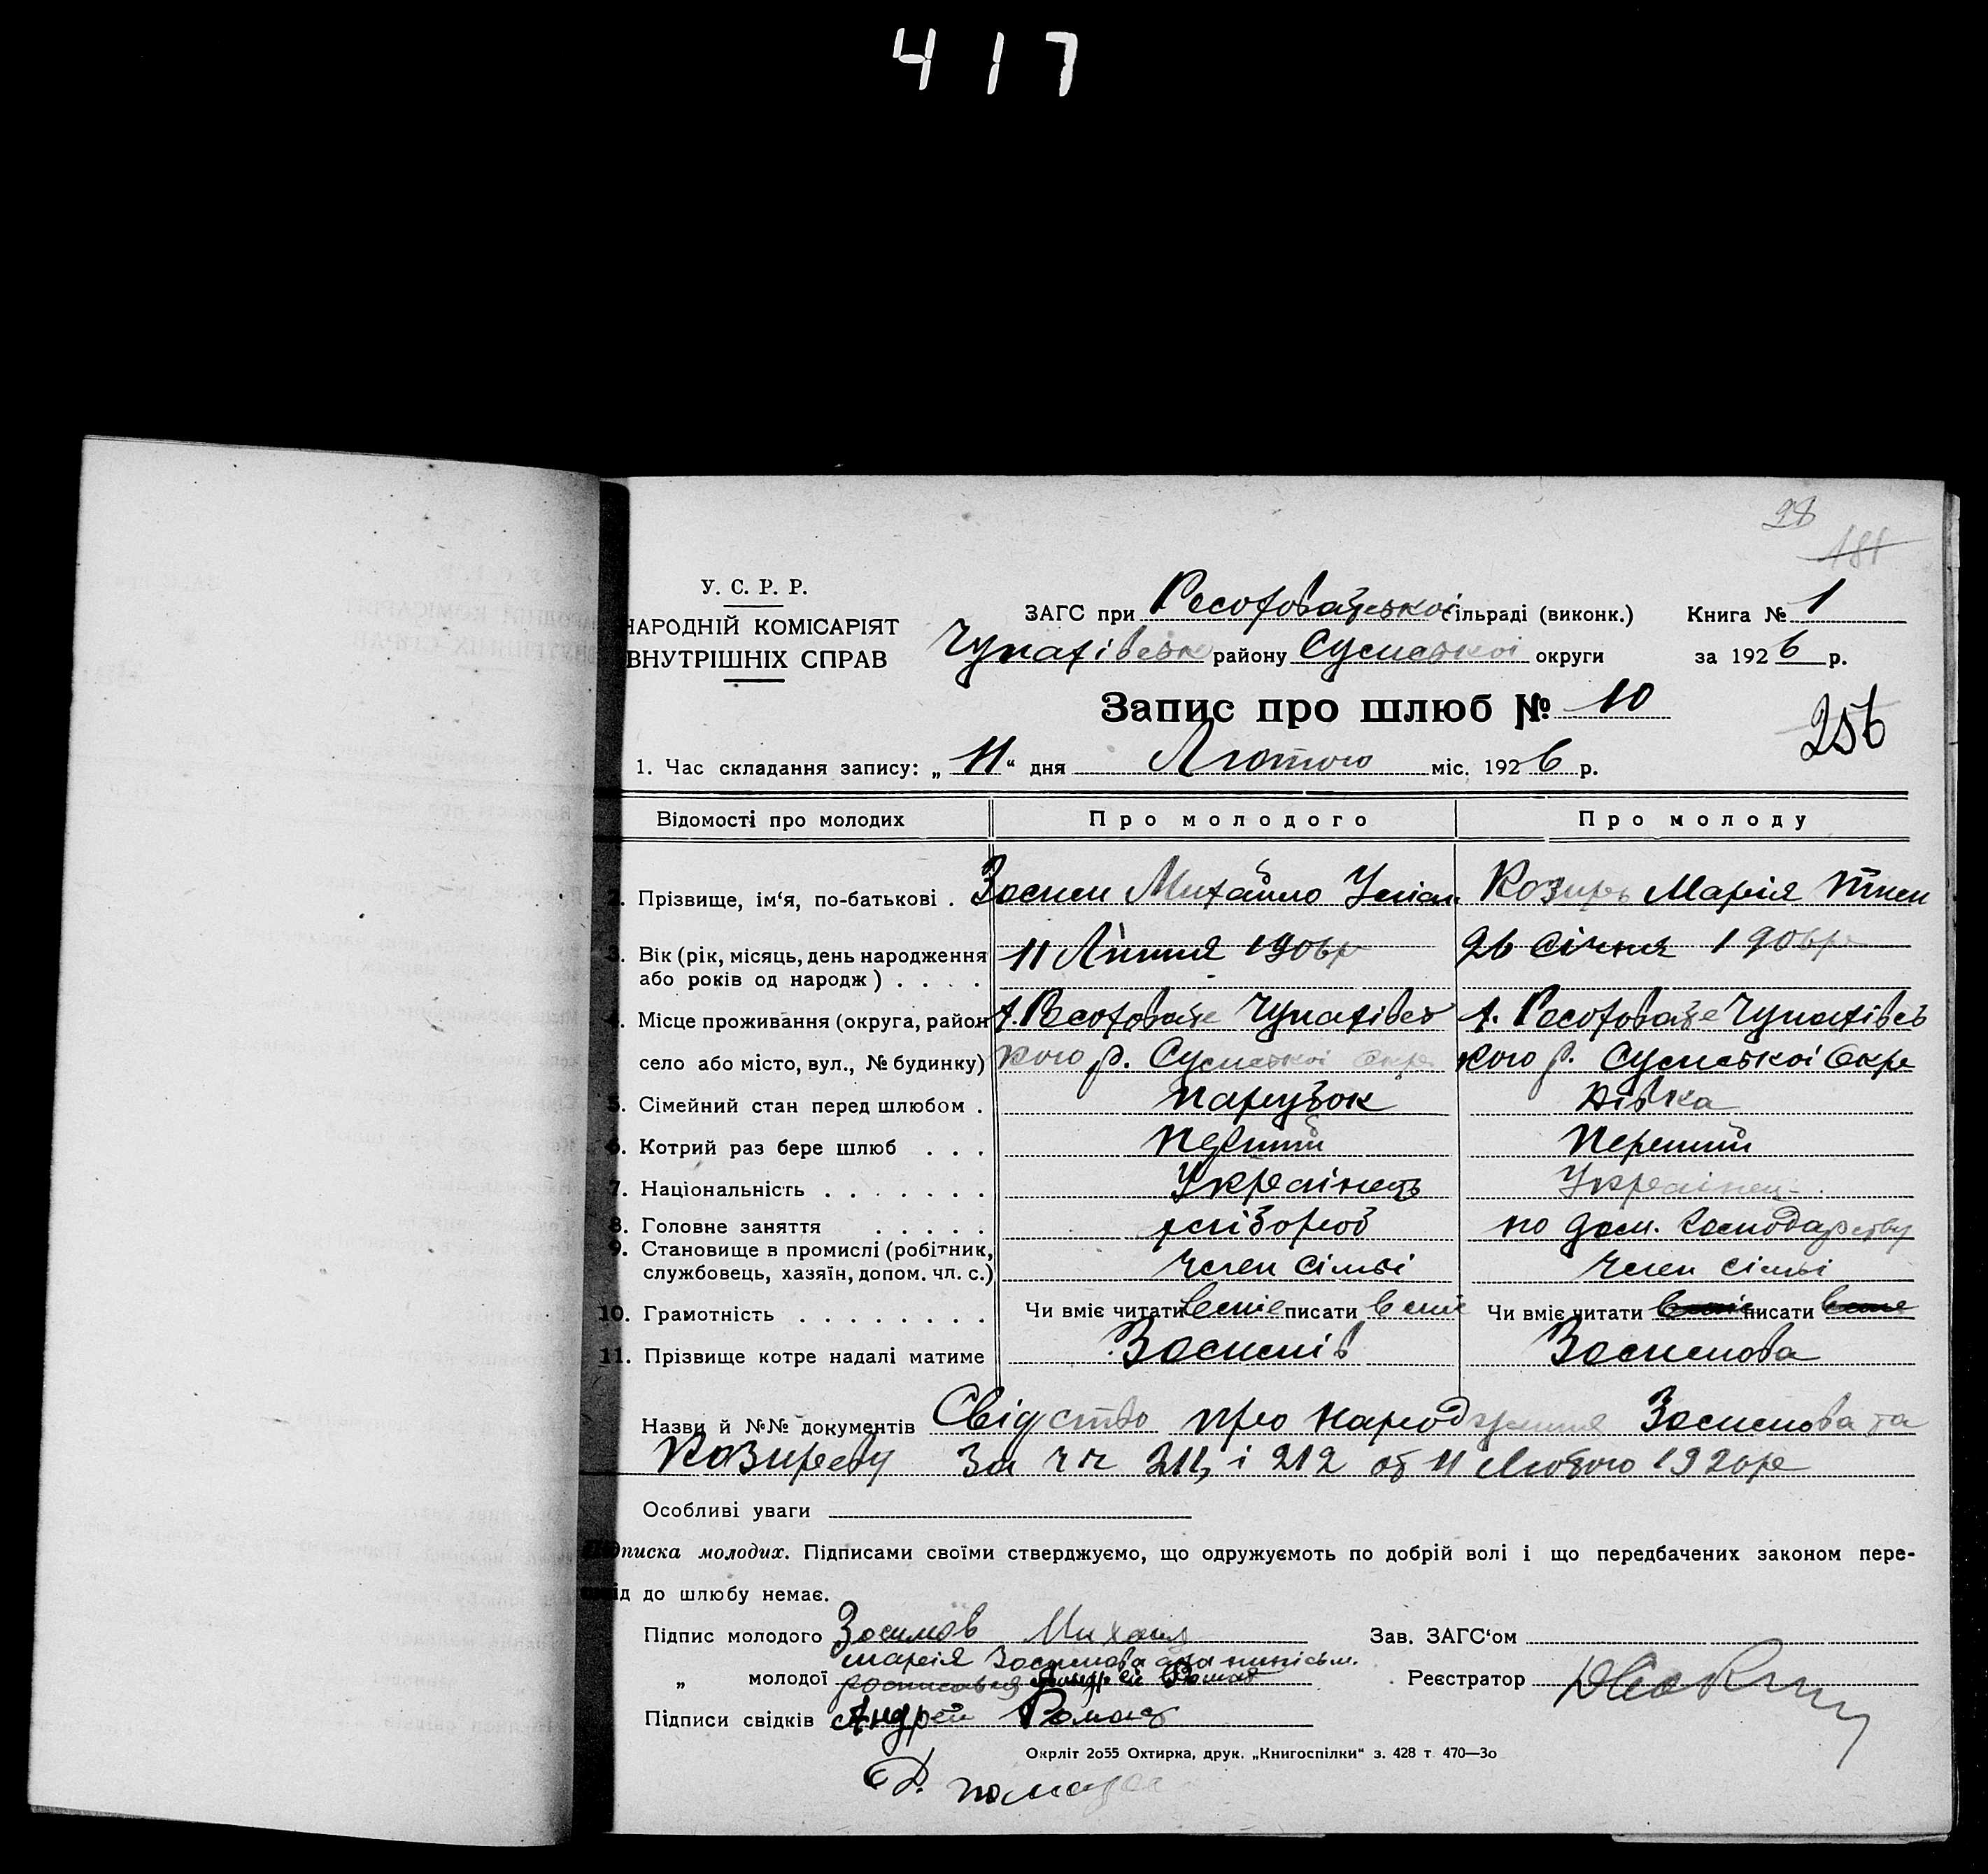 417
98
181
У. С. Р. Р.
НАРОДНІЙ КОМІСАРІЯТ
ВНУТРІШНІХ СПРАВ
ЗАГС при сільраді (виконк.) Книга № 1
Чупахівськ району Сумської округи за 1926 р.
Запис про шлюб № 10
256
1. Час складання запису: „ 11 “ дня Лютого міс. 1926 р.
Відомості про молодих Про молодого Про молоду
2. Прізвище, ім‘я, по-батькові . Михайло Козирь Марія
3. Вік (рік, місяць, день народження 11 Липня 1906р 26 Січня 1906р
або років од народж) . . . .
4. Місце проживання (округа, район Чупахівсь Чупахівсь
село або місто, вул., № будинку) кого р. Сумської Окре кого р. Сумської Окре
5. Сімейний стан перед шлюбом . Парубок Дівка
6. Котрий раз бере шлюб . . . Перший Перший
7. Національність . . . . . . . Українець Українец
8. Головне заняття . . . . . хлібороб по дом. Господарству
9. Становище в промислі (робітник,
службовець, хазяїн, допом. чл. с.) Член сімьі Член сімьі
10. Грамотність . . . . . . . . Чи вміє читати вміє писати вміє Чи вміє читати писати
11. Прізвище котре надалі матиме Зосимів Зосимова
Назви й №№ документів Свідство про народження Зосимова та
Козиреву За 211, і 212 об 11 Лютого
Особливі уваги
Підписка молодих. Підписами своїми стверджуємо, що одружуємоть по добрій волі і що передбачених законом пере-
від до шлюбу немає.
Підпис молодого Зосимов Михаил Зав. ЗАГС‘ом
Марія Зосимова
„ молодої Реєстратор
Підписи свідків Андрей
Окрліт 2о55 Охтирка, друк. „Книгоспілки“ з. 428 т 470—3о